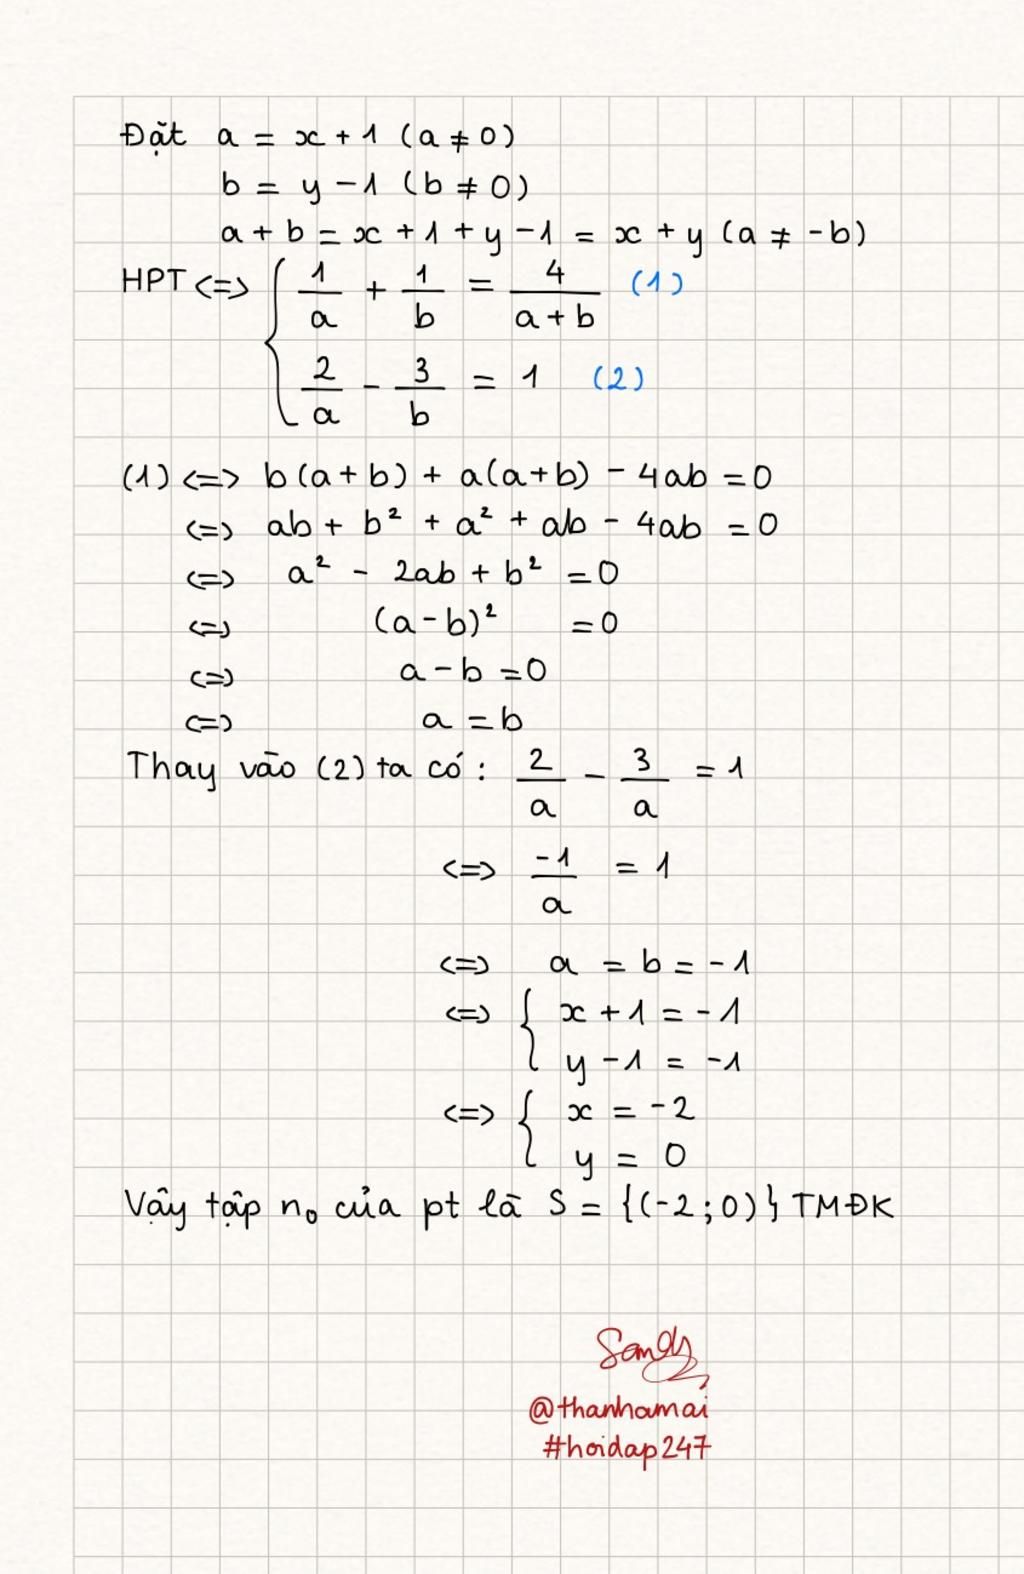 Đặt a = x + 1 (a ≠ 0)
b = y - 1 (b ≠ 0)
a + b = x + 1 + y - 1 = x + y (a ≠ -b)
HPT <=> { 1/a + 1/b = 4/(a + b) (1)
2/a - 3/b = 1 (2)
(1) <=> b(a + b) + a(a + b) - 4ab = 0
<=> ab + b² + a² + ab - 4ab = 0
<=> a² - 2ab + b² = 0
<=> (a - b)² = 0
<=> a - b = 0
<=> a = b
Thay vào (2) ta có: 2/a - 3/a = 1
<=> -1/a = 1
<=> a = b = -1
<=> { x + 1 = -1
y - 1 = -1
<=> { x = -2
y = 0
Vậy tập n₀ của pt là S = {(-2; 0)} TMĐK
Sandy
@thanhamai
#hoidap247